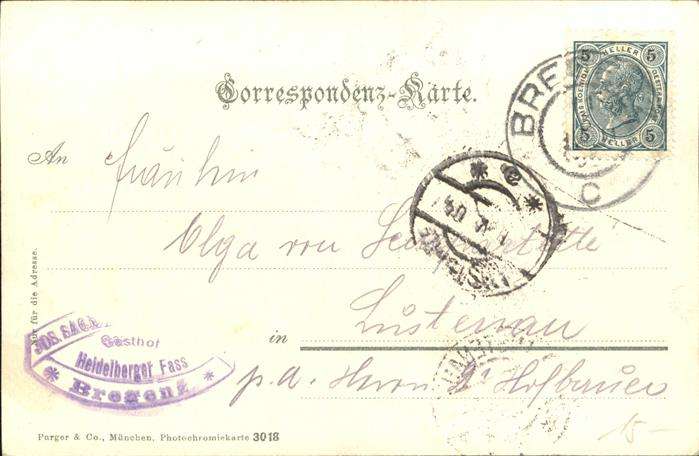 5 HELLER 5
5 HELLER 5
BRE
C
Correspondenz-Karte.
An Fräulein
Olga von
in Lustenau
p. a. Herrn Dr Hofbauer
Nur für die Adresse.
JOS. SAG
Gasthof
Heidelberger Fass
* Bregenz *
15-
Purger & Co., München, Photochromiekarte 3018